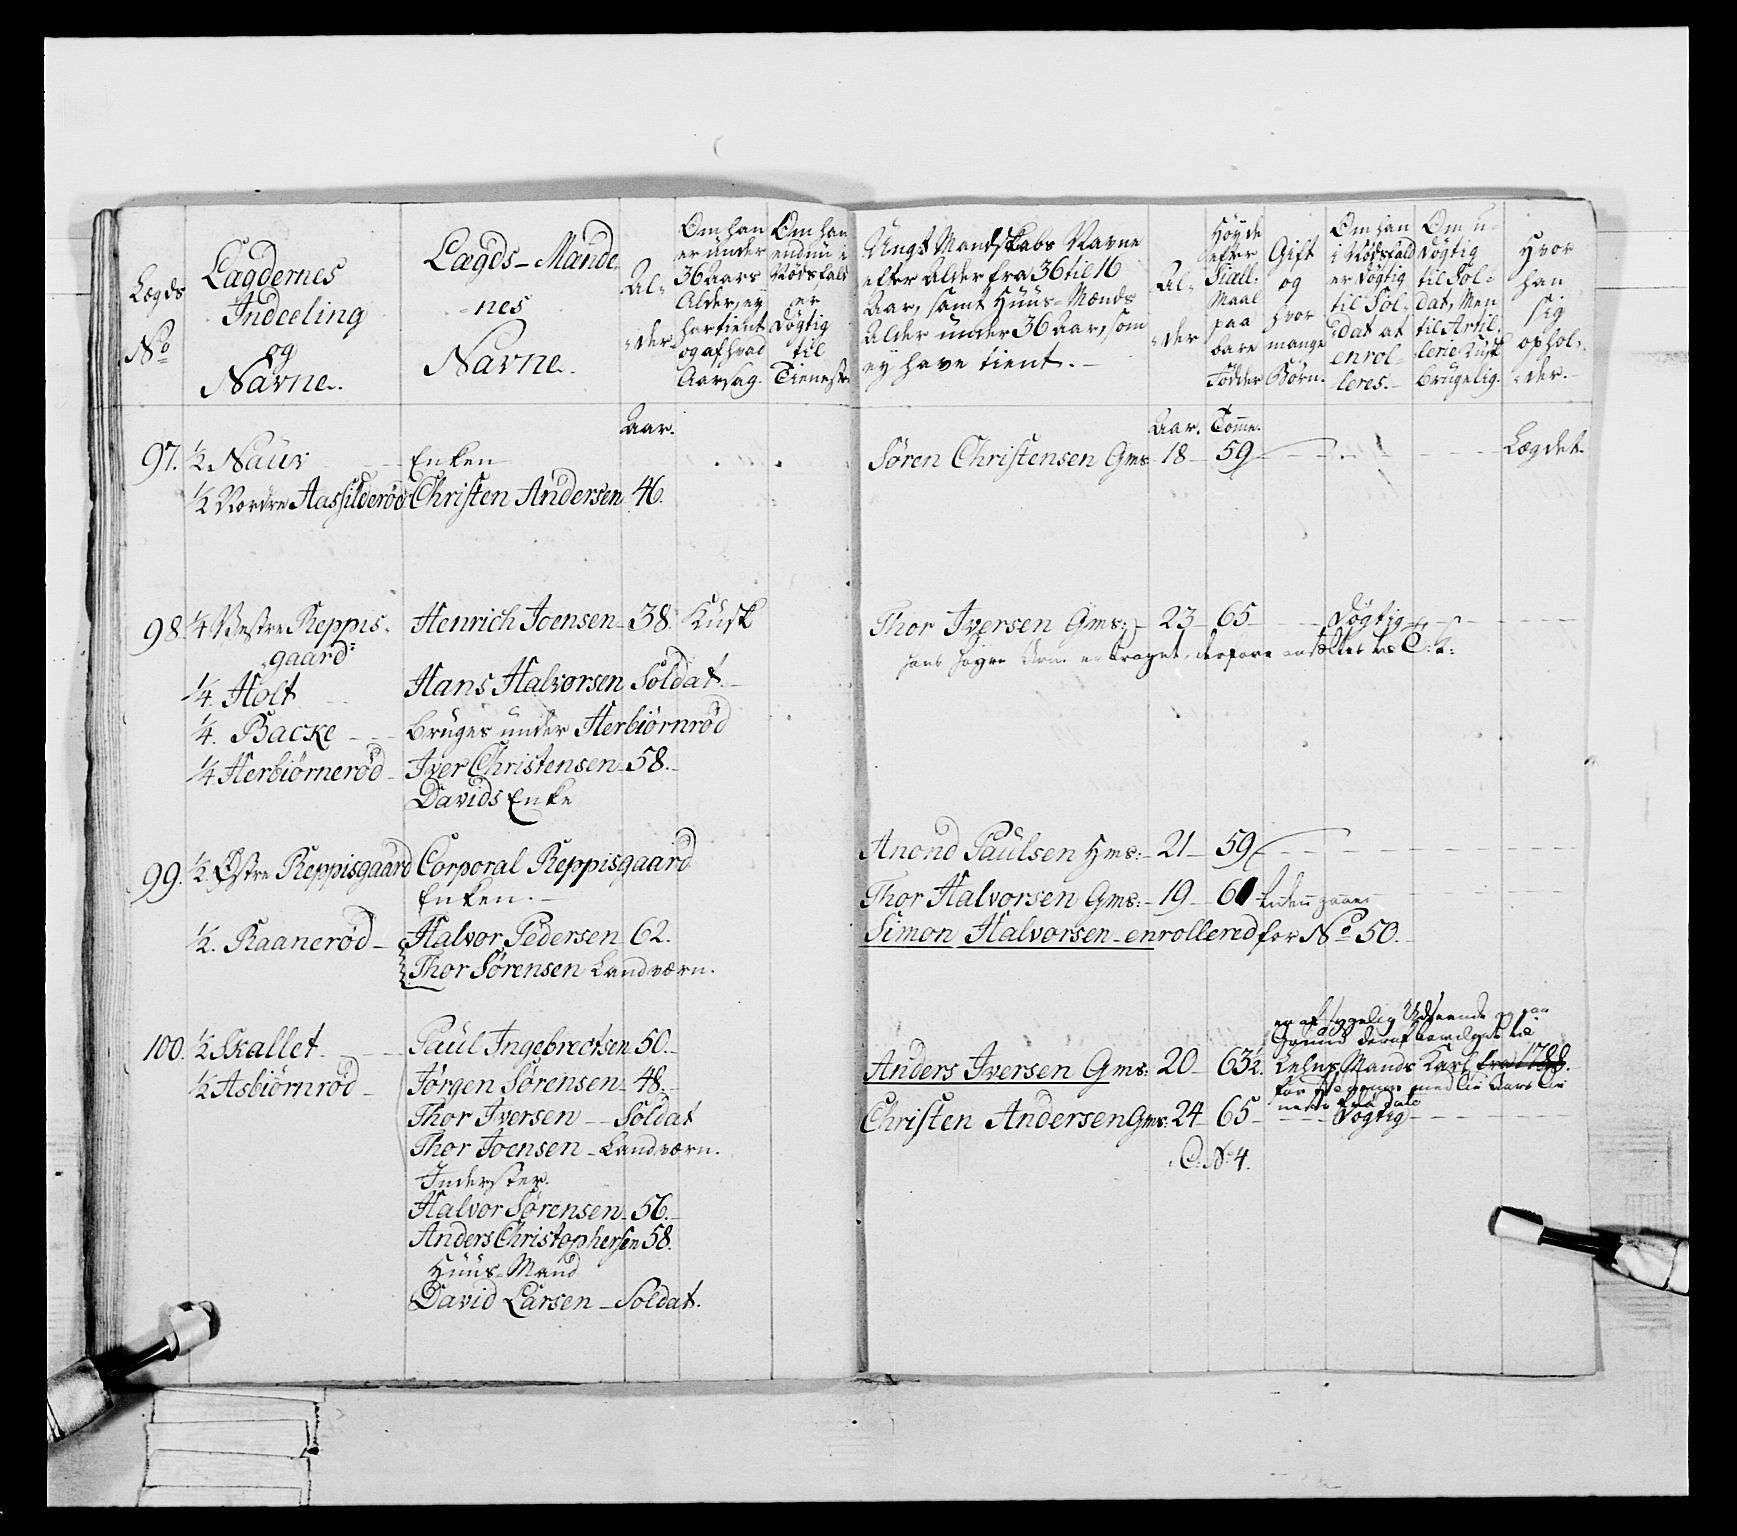 Lægds
No
Lagdernes
Indeeling
og
Navne.
Lægds-Mænde
nes
Navne.
Al-
der
Om han
er under
36 Aars
Alder, ey
har tient
og af hvad
Aarsag.
Om han
endnu i
Nødsfald
er
Døgtig
til
Tieneste
Ungt Mandskabs Navne
efter Alder fra 36 til 16
Aar, samt Huus-Mænds
Alder under 36 Aar, som
ey have tient.
Al-
der
Høyde
efter
Siæll:
Maal
paa
bare
Fødder
Gift
og
hvor
mange
Børn.
Om han
i Nødsfald
er døgtig
til Sol-
dat at
enrol-
leres.
Om u-
døgtig
til Sol-
dat, Men
til Artil:
lerie Kusk
brugelig.
Hvor
han
sig
ophol-
der.
Aar.
Aar. Tomme.
97. ½ Nauv Enken Søren Christensen Gms 18 59 Lægdet
½ Nordre Aassilderød Christen Andersen 46.
98. ¼ Vestre Reppis- Henrich Joensen 38. Kusk Thor Iversen Gms: 23 65 Døgtig
gaard hans høyre Arm er
¼. Holt Hans Halvorsen Soldat.
¼. Backe bruges under Herbiørnrød
¼ Herbiørnerød Iver Christensen 58.
Davids Enke
99. ½. Østre Reppisgaard Corporal Reppisgaard Anond Paulsen Hms: 21 59
Enken. Thor Halvorsen Gms: 19 60
½. Raanerød Halvor Pedersen 62. Simon Halvorsen enrollered for No 50.
Thor Sørensen Landværn.
100. ½ Skallet Paul Ingebrectsen 50.
er af Udseende og paa
Grund deraf til
Anders Iversen Gms: 20 63½. Lehns Mands Karl fra 1788.
½ Asbiørnrød Jørgen Sørensen 48.
Thor Iversen Soldat Christen Andersen Gms: 24 65 Døgtig
Thor Joensen Landværn. C: No 4.
Inderster.
Halvor Sørensen 56.
Anders Christophersen 58.
Huus-Mand
David Larsen Soldat.